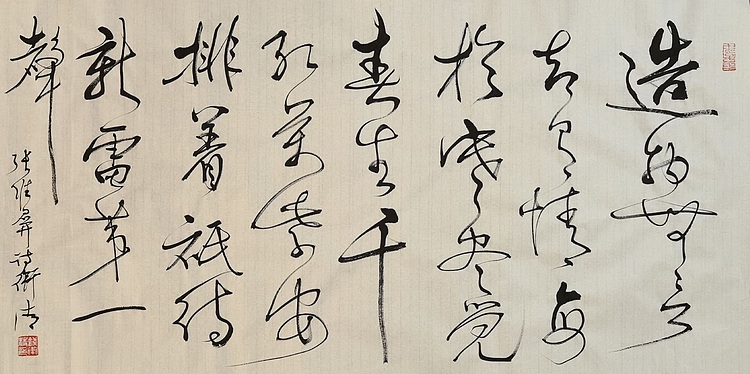 造物無言
却有情每
於寒盡覺
春生千
紅萬紫安
排着祇待
新雷第一
聲
張維屏詩